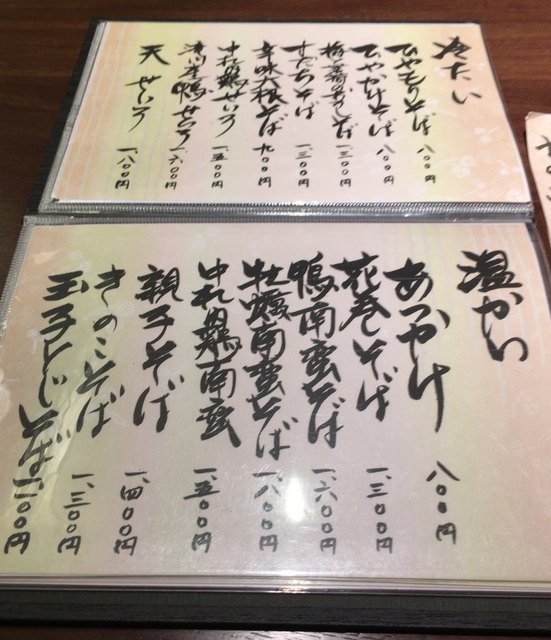 冷たい
ひやもりそば 八〇〇円
ひやかけそば 八〇〇円
そば 一、三〇〇円
すだちそば 一、三〇〇円
辛味大根そば 九〇〇円
中札内鶏せいろ 一、五〇〇円
鴨せいろ 一、六〇〇円
天せいろ 一、八〇〇円
温かい
あつかけ 八〇〇円
花巻そば 一、三〇〇円
鴨南蛮そば 一、六〇〇円
牡蠣南蛮そば 一、八〇〇円
中札内鶏南蛮 一、五〇〇円
親子そば 一、四〇〇円
きのこそば 一、三〇〇円
玉子とじそば 一、一〇〇円